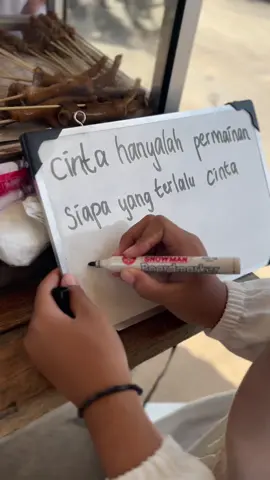 cinta hanyalah permainan
siapa yang terlalu cinta
SNOWMAN